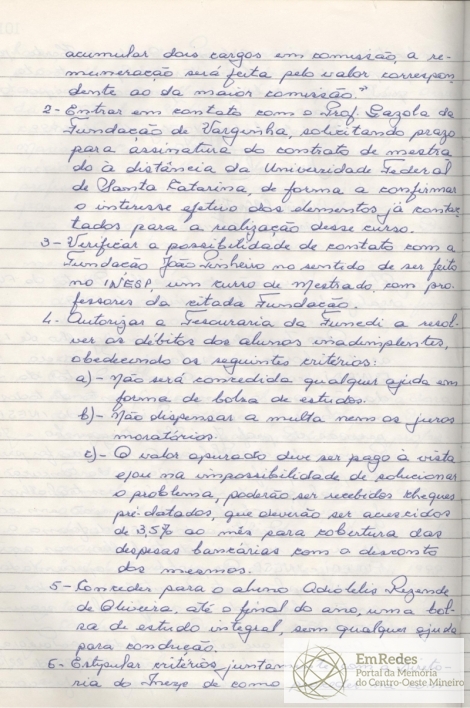 acumular dois cargos em comissão, a re-
muneração será feita pelo valor correspon
dente ao da maior comissão."
2- Entrar em contato com o Prof. Gazola da
Fundação de Varginha, solicitando prazo
para assinatura do contrato de mestra
do à distância da Universidade Federal
de Santa Catarina, de forma a confirmar
o interesse efetivo dos elementos já conta
tados para a realização desse curso.
3- Verificar a possibilidade de contato com a
Fundação João Pinheiro no sentido de ser feito
no INESP, um curso de Mestrado, com pro-
fessores da citada Fundação.
4- Autorizar a Tesouraria da Funedi a resol-
ver os débitos dos alunos inadimplentes,
obedecendo os seguintes critérios:
a)- Não será concedida qualquer ajuda em
forma de bolsa de estudos.
b)- Não dispensar a multa nem os juros
moratórios.
c)- O valor apurado deve ser pago à vista
e/ou na impossibilidade de solucionar
o problema, poderão ser recebidos cheques
pré-datados, que deverão ser acrescidos
de 3,5% ao mês para cobertura das
despesas bancárias com a desconto
dos mesmos.
5- Conceder para o aluno Rezende
de Oliveira, até o final do ano, uma bol-
sa de estudo integral, sem qualquer ajuda
para condução.
6- Estipular critérios
ria do Inesp de como
EmRedes
Portal da Memória
do Centro-Oeste Mineiro